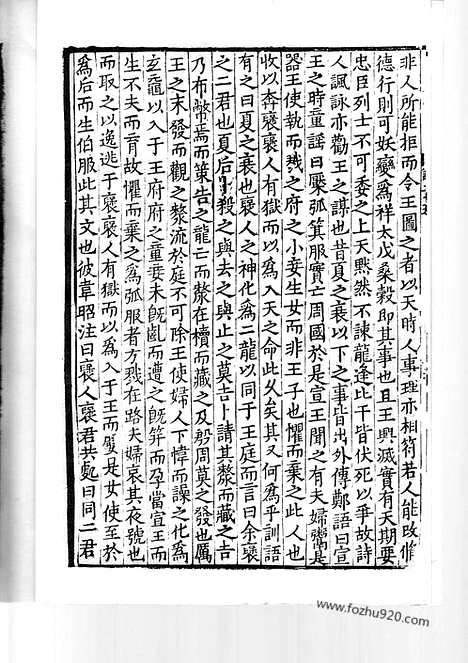 非人所能拒而令王圖之者以天時人事理亦相符若人能改脩
德行則可妖變為祥太戊桑穀即其事也且王興滅實有天期要
忠臣列士不可委之上天黙然不諫龍逢比干皆伏死以爭故詩
人諷詠亦勸王之謀也昔夏之衰以下之事皆出外傳鄭語曰宣
王之時童謡曰檿弧箕服實亡周國於是宣王聞之有夫婦鬻是
器王使執而戮之府之小妾生女而非王子也懼而棄之此人也
收以奔襃襃人有獄而以為入天之命此久矣其又何為乎訓語
有之曰夏之衰也襃人之神化為二龍以同于王庭而言曰余襃
之二君也夏后卜殺之與去之與止之莫吉卜請其漦而藏之吉
乃布幣焉而策告之龍亡而漦在櫝而藏之及殷周莫之發也厲
王之末發而觀之漦流於庭不可除王使婦人下幃而譟之化為
玄黿以入于王府府之童妾未旣齓而遭之旣筓而孕當宣王而
生不夫而育故懼而棄之為弧服者方戮在路夫婦哀其夜號也
而取之以逸逃于襃襃人有獄而以為入于王而嬖是女使至於
為后而生伯服此其文也彼韋昭注曰襃人襃君共處曰同二君
www.fozhu920.com